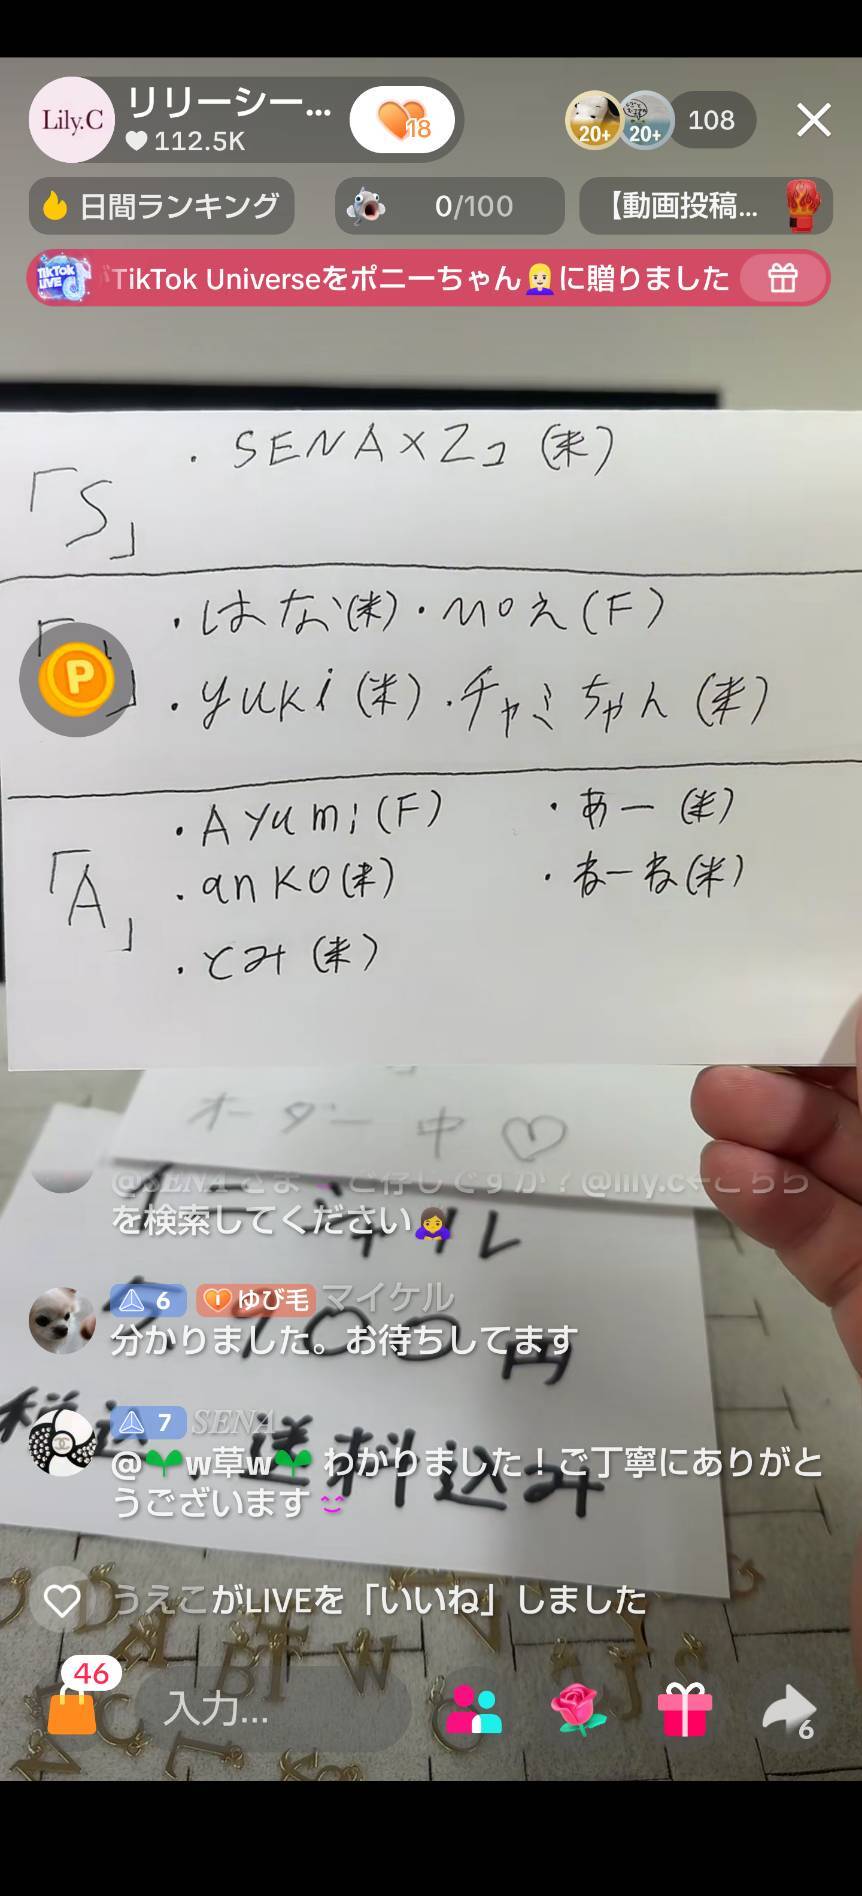 Lily.C
リリーシー...
112.5K
18
20+
20+
108
日間ランキング
0/100
【動画投稿...
TikTok LIVE
がTikTok Universeをポニーちゃん👱‍♀️に贈りました
・SENA×2コ(米)
「S」
・はな(米)・moえ(F)
P
・yuki(米)・チャミちゃん(米)
・Ayumi(F)
・あー(米)
「A」
・anKo(米)
・ねーね(米)
・とみ(米)
オーダー中♡
@SENAさま ご存じですか?@lily.c←こちら
を検索してください🙇‍♀️
6 ゆび毛 マイケル
分かりました。お待ちしてます
900円
7 SENA
@🌱w草w🌱 わかりました!ご丁寧にありがと
うございます
税込 送料込み
うえこがLIVEを「いいね」しました
46
入力...
6